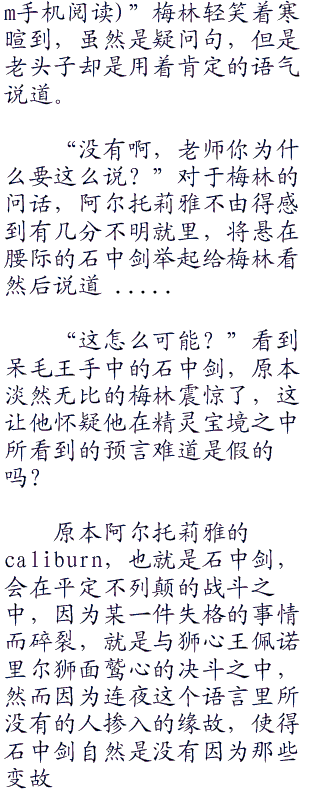 m手机阅读)”梅林轻笑着寒
暄到，虽然是疑问句，但是
老头子却是用着肯定的语气
说道。
“没有啊，老师你为什
么要这么说？”对于梅林的
问话，阿尔托莉雅不由得感
到有几分不明就里，将悬在
腰际的石中剑举起给梅林看
然后说道 .....
“这怎么可能？”看到
呆毛王手中的石中剑，原本
淡然无比的梅林震惊了，这
让他怀疑他在精灵宝境之中
所看到的预言难道是假的
吗？
原本阿尔托莉雅的
caliburn，也就是石中剑，
会在平定不列颠的战斗之
中，因为某一件失格的事情
而碎裂，就是与狮心王佩诺
里尔狮面鹫心的决斗之中，
然而因为连夜这个语言里所
没有的人掺入的缘故，使得
石中剑自然是没有因为那些
变故